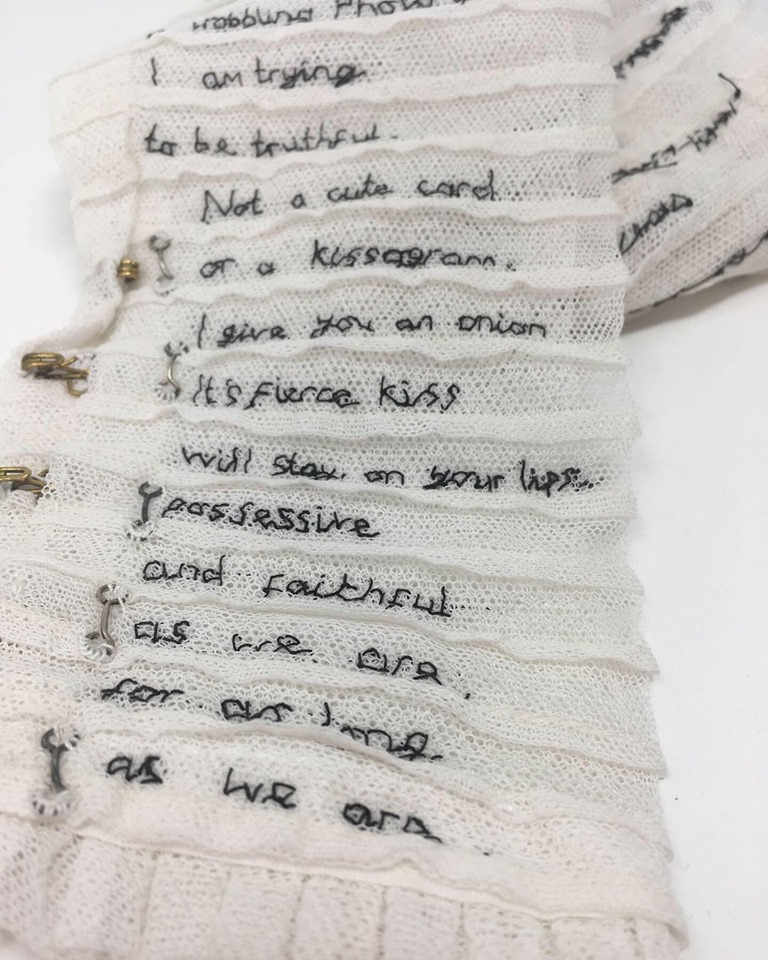 wobbling Photo
I am trying
to be truthful.
Not a cute card
or a kissogram.
I give you an onion
It's fierce kiss
will stay on your lips,
possessive
and faithful
as we are,
for as long
as we are